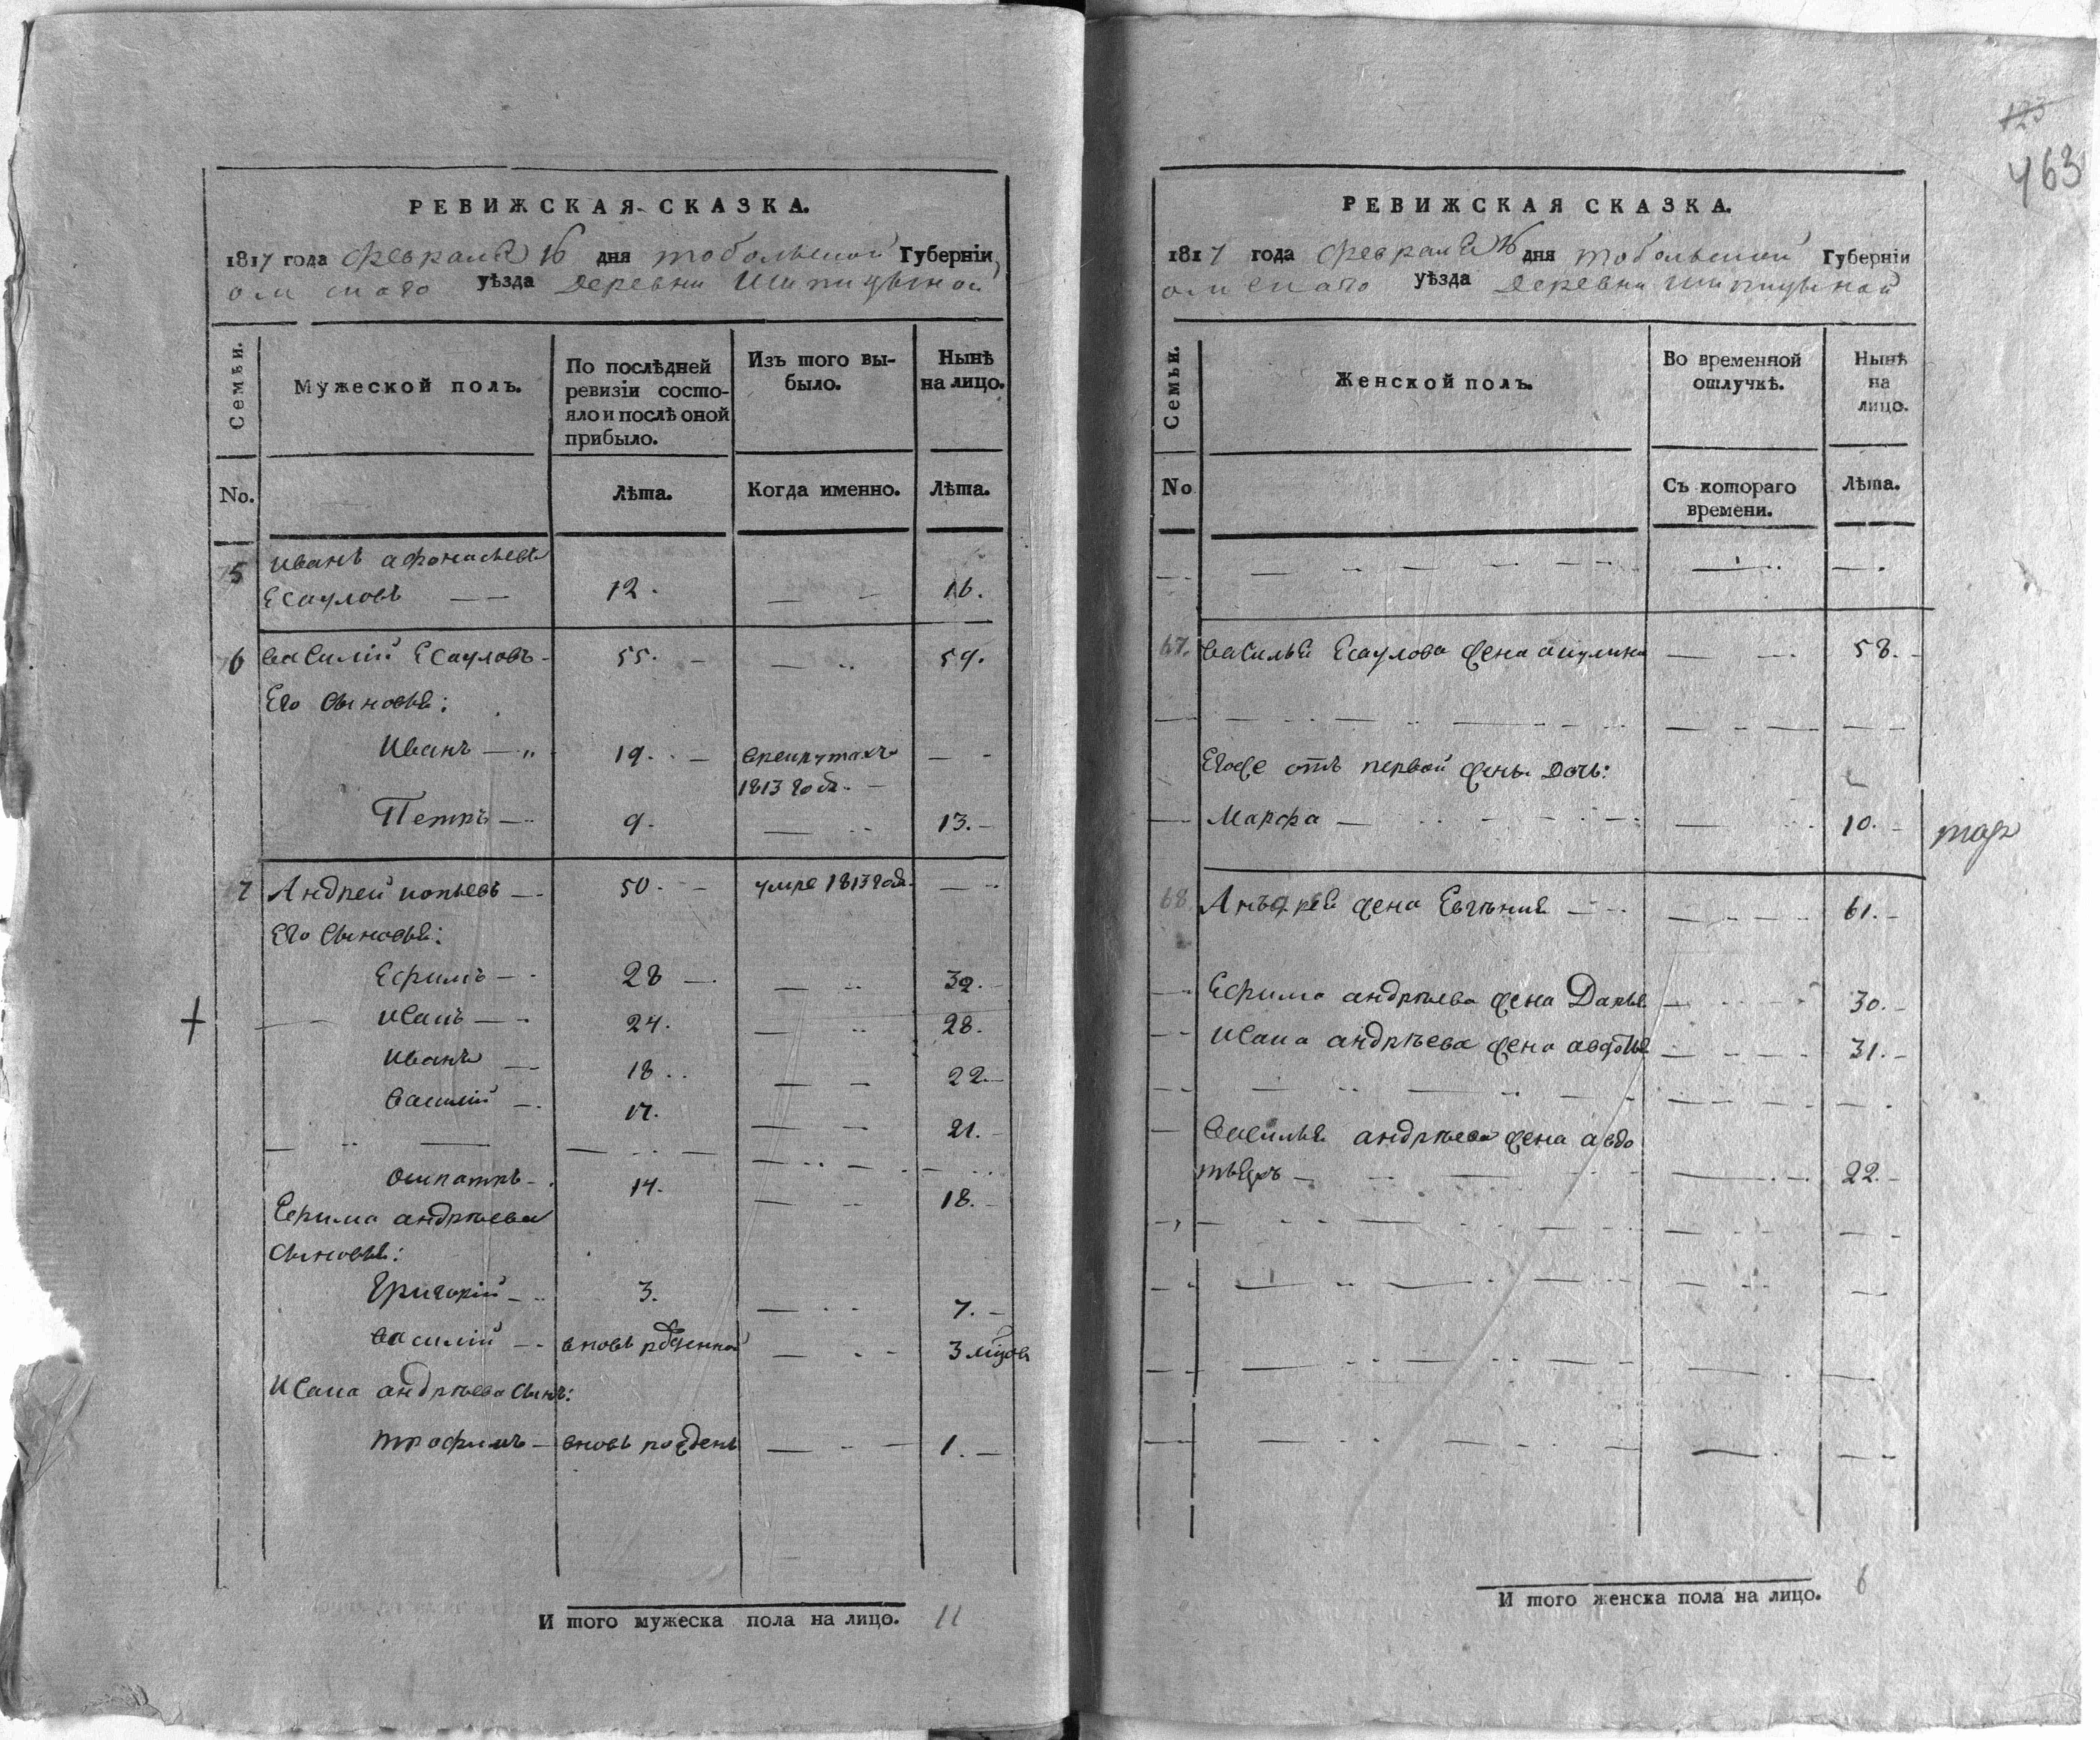 РЕВИЖСКАЯ СКАЗКА.
1817 года февраля 16 дня тобольской Губернїи,
омскаго уѣзда деревни Шипицыной
Семьи.
Мужеской полъ.
По послѣдней ревизїи состо-
яло и послѣ оной прибыло.
Изъ того вы-
было.
Нынѣ
на лицо.
No.
Лѣта.
Когда именно.
Лѣта.
5 иванъ афонасьевъ
Есауловъ 12. 16.
6 василїй Есауловъ 55. 59.
Его сыновья:
Иванъ 19. врекрутахъ
1813 года.
Петръ 9. 13.
7 Андрей копьевъ 50. умре 1813 года
Его сыновья:
Ефимъ 28 32.
Исакъ 24. 28.
Иванъ 18. 22
василїй 17. 21.
осипатръ 14. 18.
Ефима андрѣева
сыновья:
Григорїй 3. 7.
василїй вновь рожденной 3 мцов
Исака андрѣева сынъ:
трофимъ вновь рожденъ 1.
И того мужеска пола на лицо. 11
123
463
РЕВИЖСКАЯ СКАЗКА.
1817 года февраля 16 дня тобольской Губернїи
омскаго уѣзда деревни шипицыной
Семьи.
Женской полъ.
Во временной
отлучкѣ.
Нынѣ
на
лицо.
No
Съ котораго
времени.
Лѣта.
67. василья Есаулова жена акулина 58.
Егоже отъ первой жены дочь:
Марфа 10.
68 Андрея жена Евгѣния 61.
Ефима андрѣева жена Дарья 30.
Исака андрѣева жена авдотья 31.
василья андрѣева жена авдо
тьяжъ 22.
И того женска пола на лицо. 6